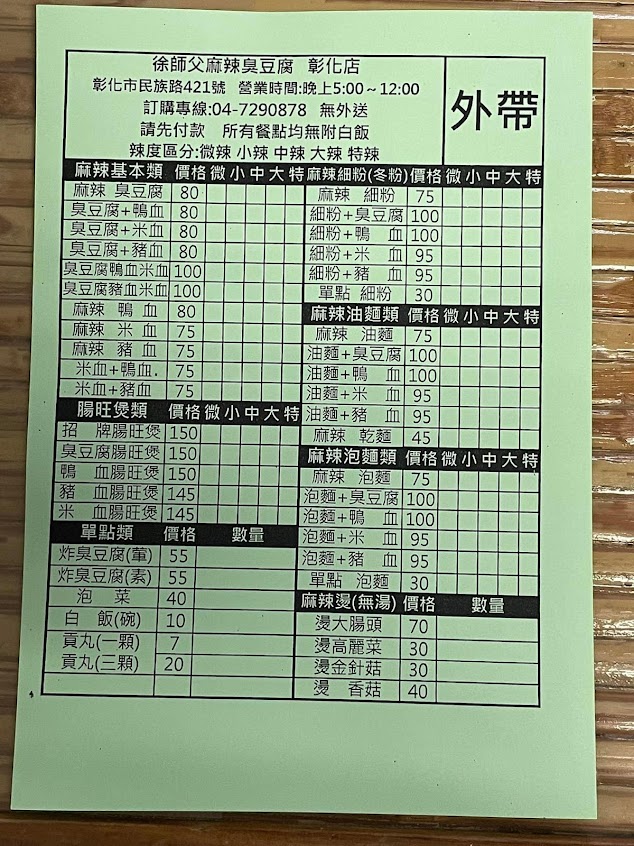 徐師父麻辣臭豆腐 彰化店
彰化市民族路421號 營業時間:晚上5:00~12:00
訂購專線:04-7290878 無外送
請先付款 所有餐點均無附白飯
辣度區分:微辣 小辣 中辣 大辣 特辣
外帶
麻辣基本類 價格 微 小 中 大 特
麻辣 臭豆腐 80
臭豆腐+鴨血 80
臭豆腐+米血 80
臭豆腐+豬血 80
臭豆腐鴨血米血 100
臭豆腐豬血米血 100
麻辣 鴨 血 80
麻辣 米 血 75
麻辣 豬 血 75
米血+鴨血. 75
米血+豬血 75
腸旺煲類 價格 微 小 中 大 特
招 牌腸旺煲 150
臭豆腐腸旺煲 150
鴨 血腸旺煲 150
豬 血腸旺煲 145
米 血腸旺煲 145
單點類 價格 數量
炸臭豆腐(葷) 55
炸臭豆腐(素) 55
泡 菜 40
白 飯(碗) 10
貢丸(一顆) 7
貢丸(三顆) 20
麻辣細粉(冬粉) 價格 微 小 中 大 特
麻辣 細粉 75
細粉+臭豆腐 100
細粉+鴨 血 100
細粉+米 血 95
細粉+豬 血 95
單點 細粉 30
麻辣油麵類 價格 微 小 中 大 特
麻辣 油麵 75
油麵+臭豆腐 100
油麵+鴨 血 100
油麵+米 血 95
油麵+豬 血 95
麻辣 乾麵 45
麻辣泡麵類 價格 微 小 中 大 特
麻辣 泡麵 75
泡麵+臭豆腐 100
泡麵+鴨 血 100
泡麵+米 血 95
泡麵+豬 血 95
單點 泡麵 30
麻辣燙(無湯) 價格 數量
燙大腸頭 70
燙高麗菜 30
燙金針菇 30
燙 香菇 40